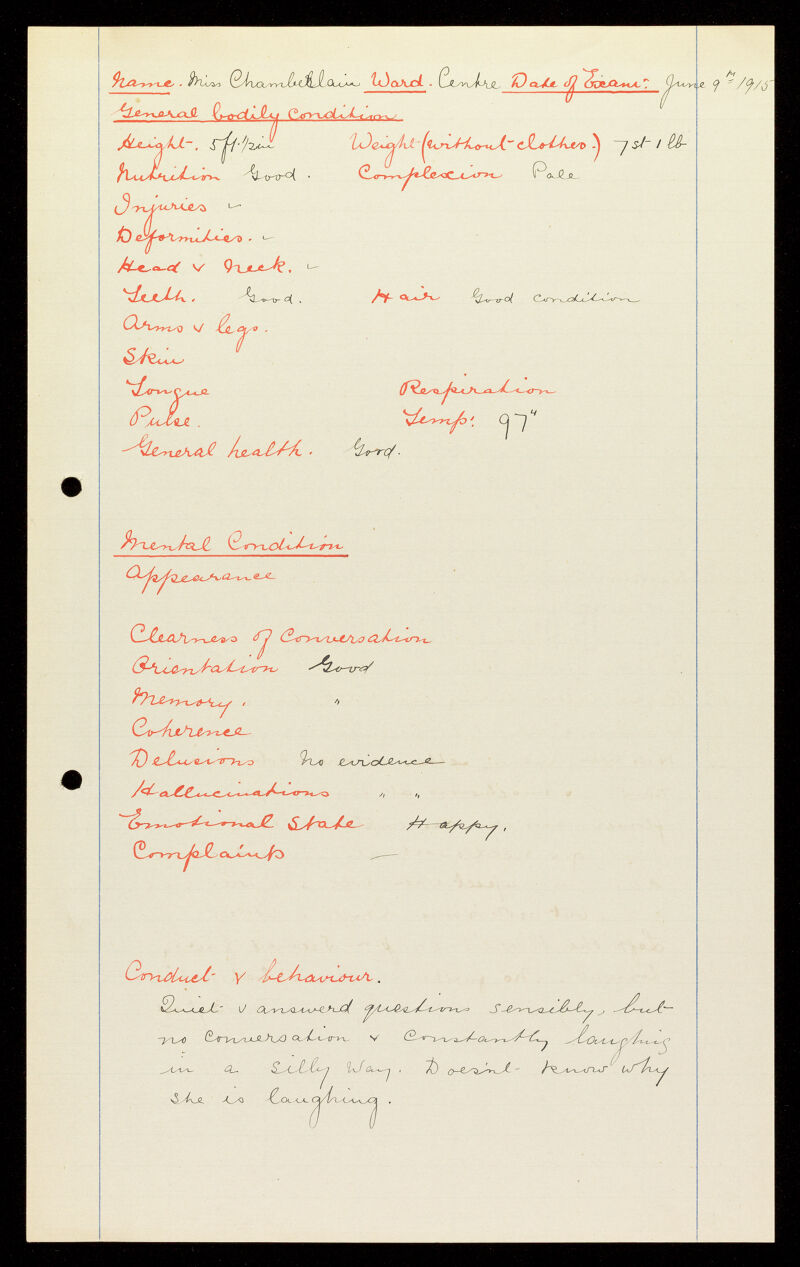 Name. Miss Chamberlain Ward. Centre Date of Exam: June 9th 1915
General bodily condition
Height. 5ft. 1/2in Weight (without clothes.) 7st 1 lb
Nutrition Good. Complexion Pale
Injuries -
Deformities. -
Head & Neck. -
Teeth. Good. Hair Good condition
Arms & legs.
Skin
Tongue Respiration
Pulse. Temp: 97"
General health. Good.
Mental Condition
Appearance
Clearness of Conversation
Orientation Good
Memory. "
Coherence
Delusions No evidence
Hallucinations " "
Emotional State Happy.
Complaints —
Conduct & behaviour.
Quiet & answerd questions sensibly, but
no conversation & constantly laughing
in a silly way. Does'nt know why
she is laughing.